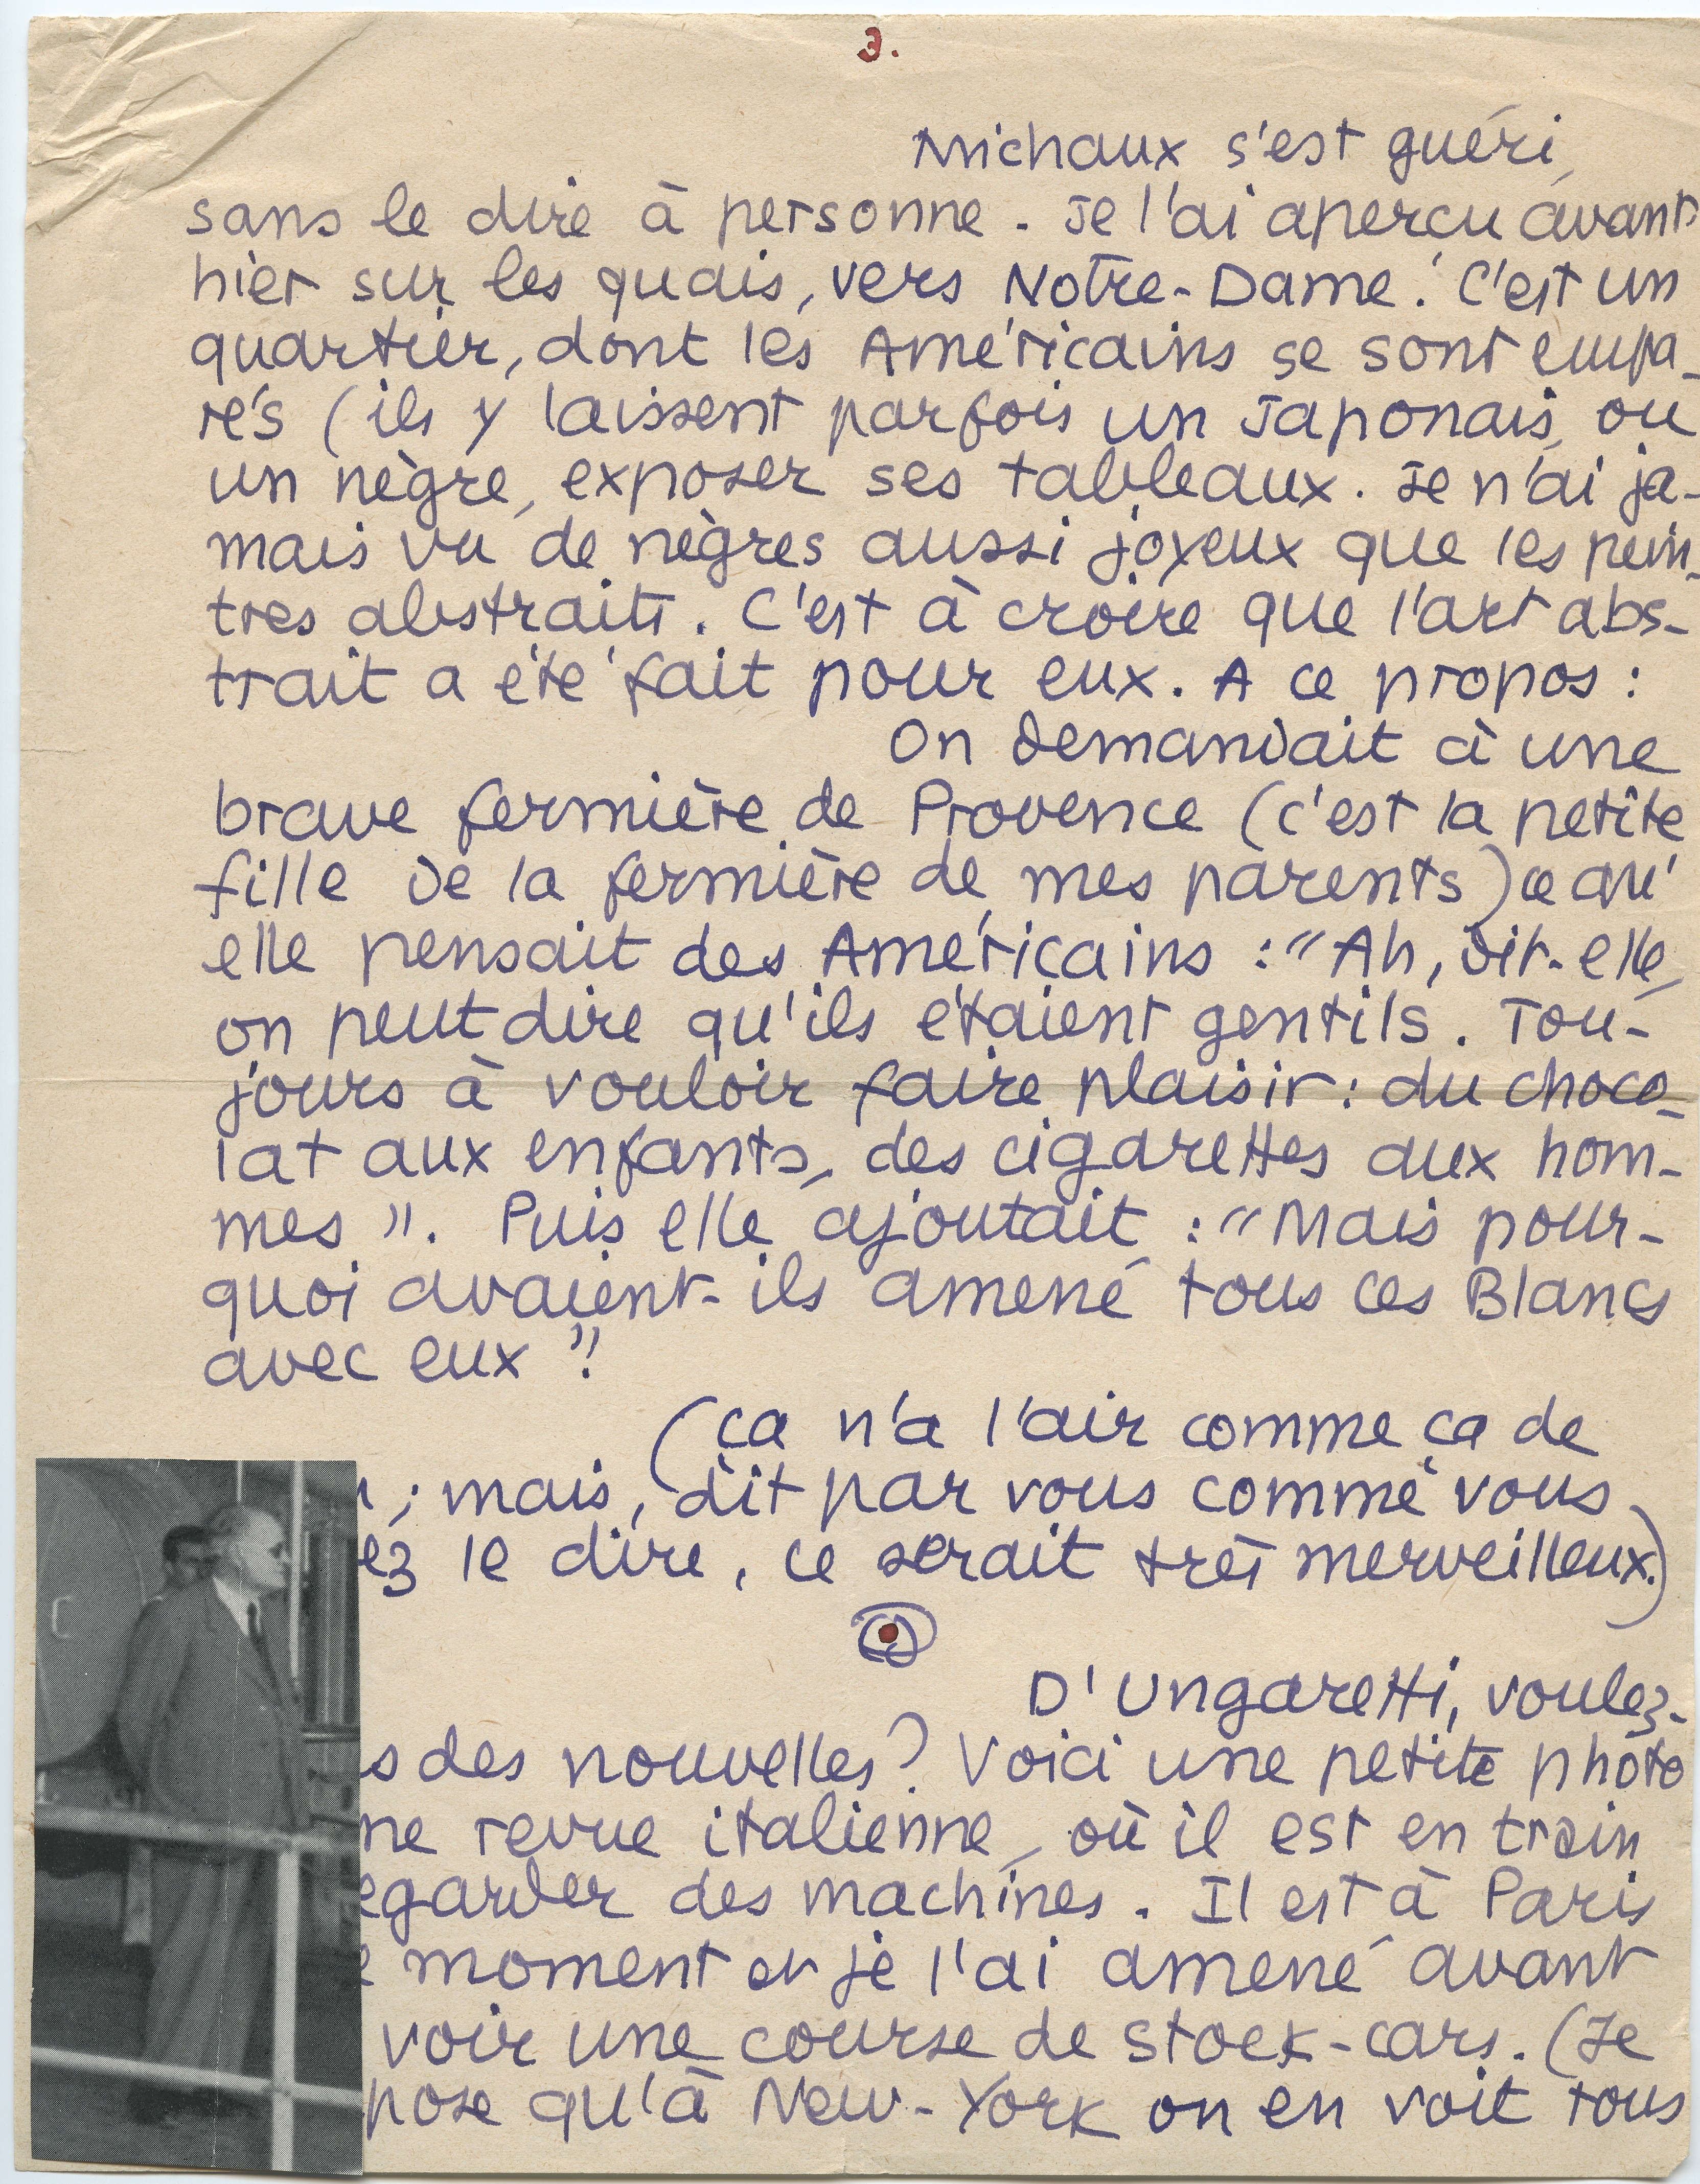 3.
Michaux s'est guéri,
sans le dire à personne. Je l'ai aperçu avant
hier sur les quais, vers Notre-Dame. C'est un
quartier, dont les Américains se sont empa-
rés (ils y laissent parfois un Japonais, ou
un nègre, exposer ses tableaux. Je n'ai ja-
mais vu de nègres aussi joyeux que les pein-
tres abstraits. C'est à croire que l'art abs-
trait a été fait pour eux. A ce propos :
On demandait à une
brave fermière de Provence (c'est la petite
fille de la fermière de mes parents) ce qu'
elle pensait des Américains : "Ah, dit-elle,
on peut dire qu'ils étaient gentils. Tou-
jours à vouloir faire plaisir : du choco-
lat aux enfants, des cigarettes aux hom-
mes". Puis elle ajoutait : "Mais pour-
quoi avaient-ils amené tous ces Blancs
avec eux"?
(ça n'a l'air comme ça de
; mais, dit par vous comme vous
ez le dire, ce serait très merveilleux.)
D'Ungaretti, voulez-
s des nouvelles? Voici une petite photo
ne revue italienne, où il est en train
egarder des machines. Il est à Paris
e moment et je l'ai amené avant
voir une course de stock-cars. (Je
pose qu'à New-York on en voit tous